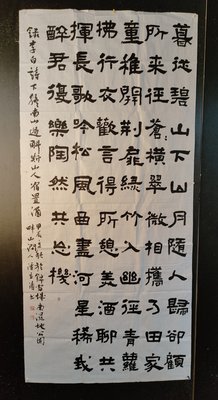 暮從碧山下山月隨人歸卻顧
所來徑蒼々橫翠微相攜及田家
童稚開荊扉綠竹入幽徑青蘿
拂行衣歡言得所憩美酒聊共
揮長歌吟松風曲盡河星稀我
醉君復樂陶然共忘機
錄李白詩下終南山過斛斯山人宿置酒